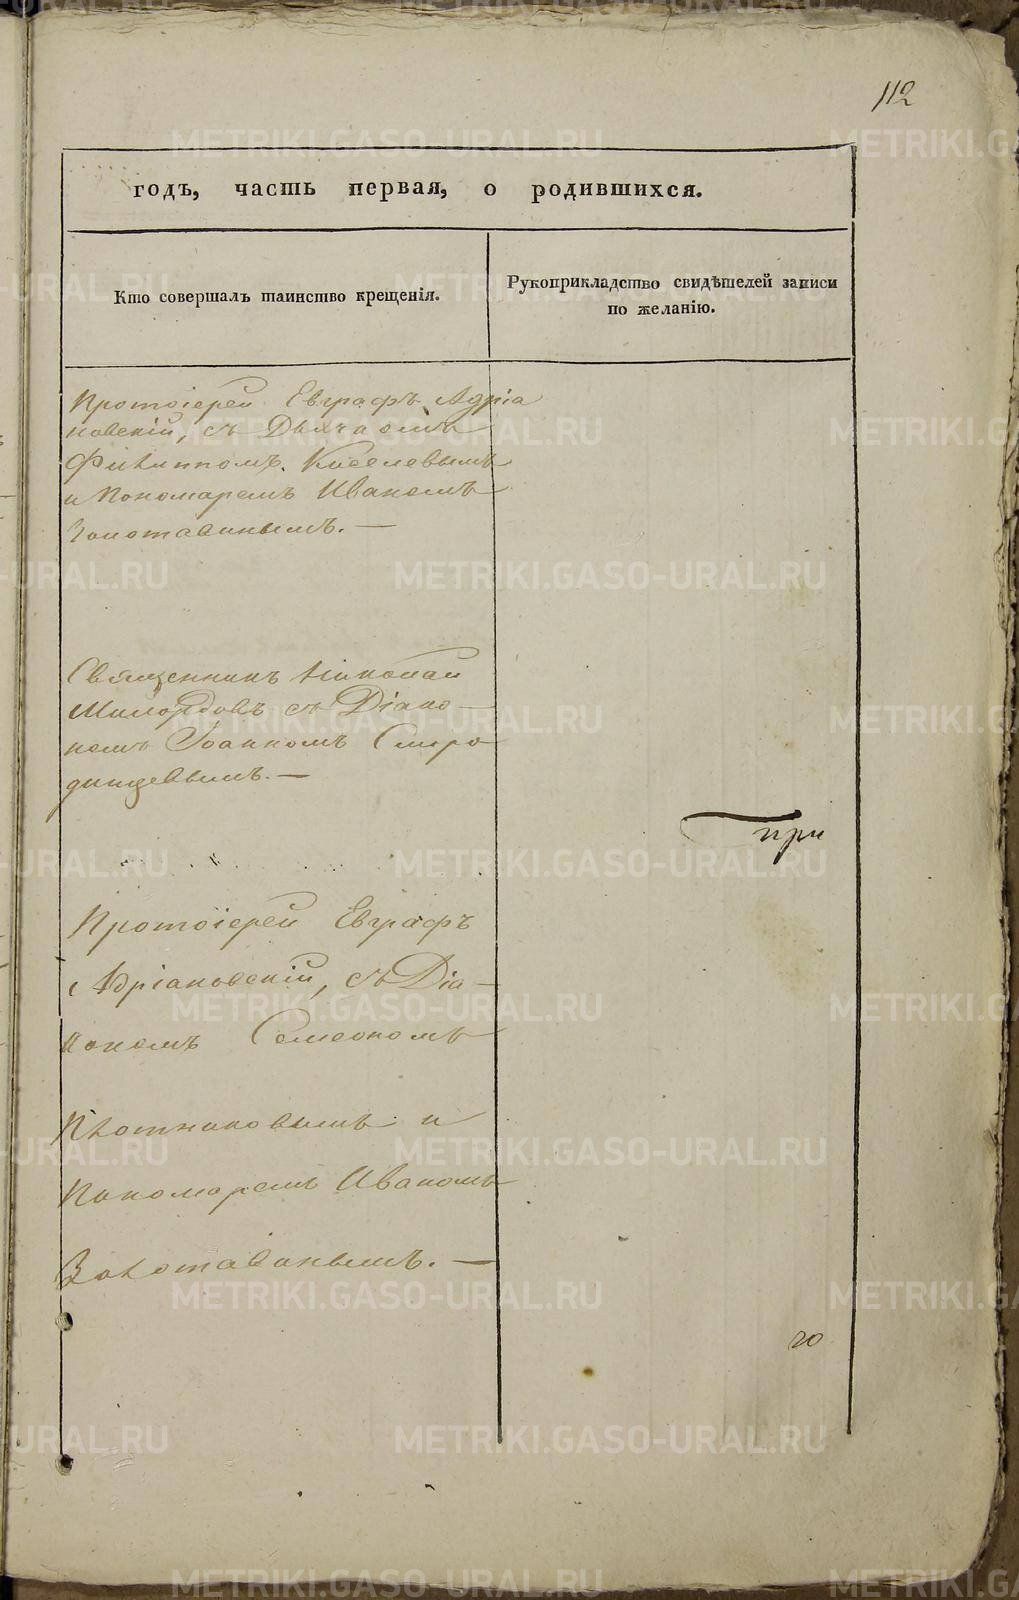 112
годъ, часть первая, о родившихся.
Кто совершалъ таинство крещенія.
Рукоприкладство свидѣтелей записи
по желанію.
Протоіерей Евграфъ Адріа
новскій, съ Дьячкомъ
Филиппомъ Киселевымъ
и Пономаремъ Иваномъ
Золотавинымъ. —
Священникъ Николай
съ Діако-
номъ Іоанномъ Смо
динцевымъ. —
при
Протоіерей Евграфъ
Адріановскій, съ Діа-
кономъ Симеономъ
Плотниковымъ и
Пономаремъ Иваномъ
Золотавинымъ. —
го
METRIKI.GASO-URAL.RU